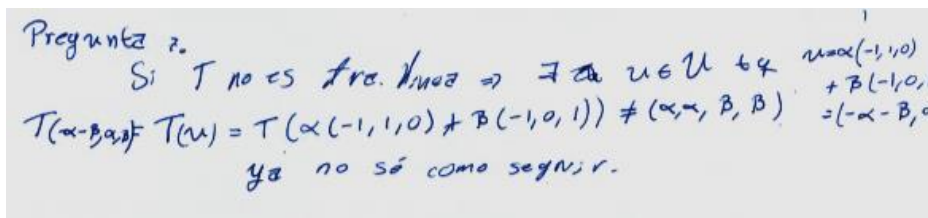 Pregunta 7.
Si T no es tra. linea => ∃ u ∈ U tq u=α(-1,1,0)
+ β(-1,0,
T(α-β,α,β)= T(u) = T(α(-1,1,0) + β(-1,0,1)) ≠ (α,α, β, β) =(-α-β,
ya no sé como seguir.